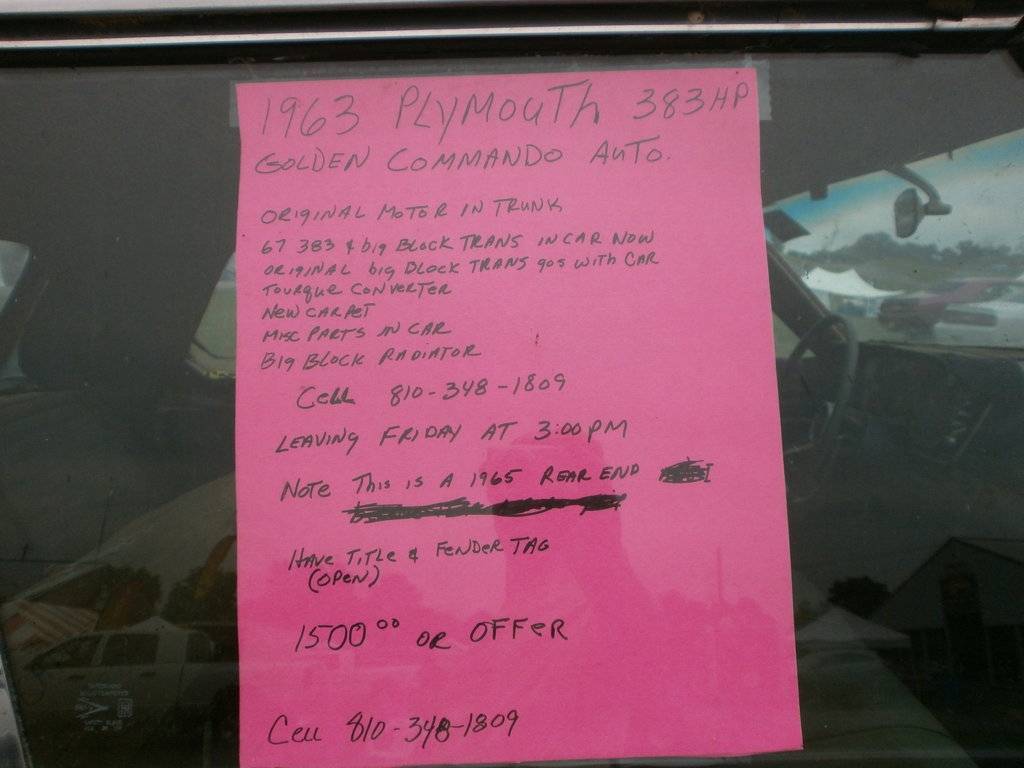 1963 PLYMOUTH 383HP
GOLDEN COMMANDO AUTO.
ORIGINAL MOTOR IN TRUNK
67 383 & big BLOCK TRANS IN CAR NOW
ORIGINAL big BLOCK TRANS gos with CAR
TOURQUE CONVERTER
NEW CARPET
MISC PARTS IN CAR
BIg BLOCK RADIATOR
CeLL 810-348-1809
LEAVINg FRIDAY AT 3:00PM
NOTe This is A 1965 REAR END
HAVE TITLe & FeNDER TAG
(OPEN)
1500⁰⁰ OR OFFeR
Cell 810-348-1809